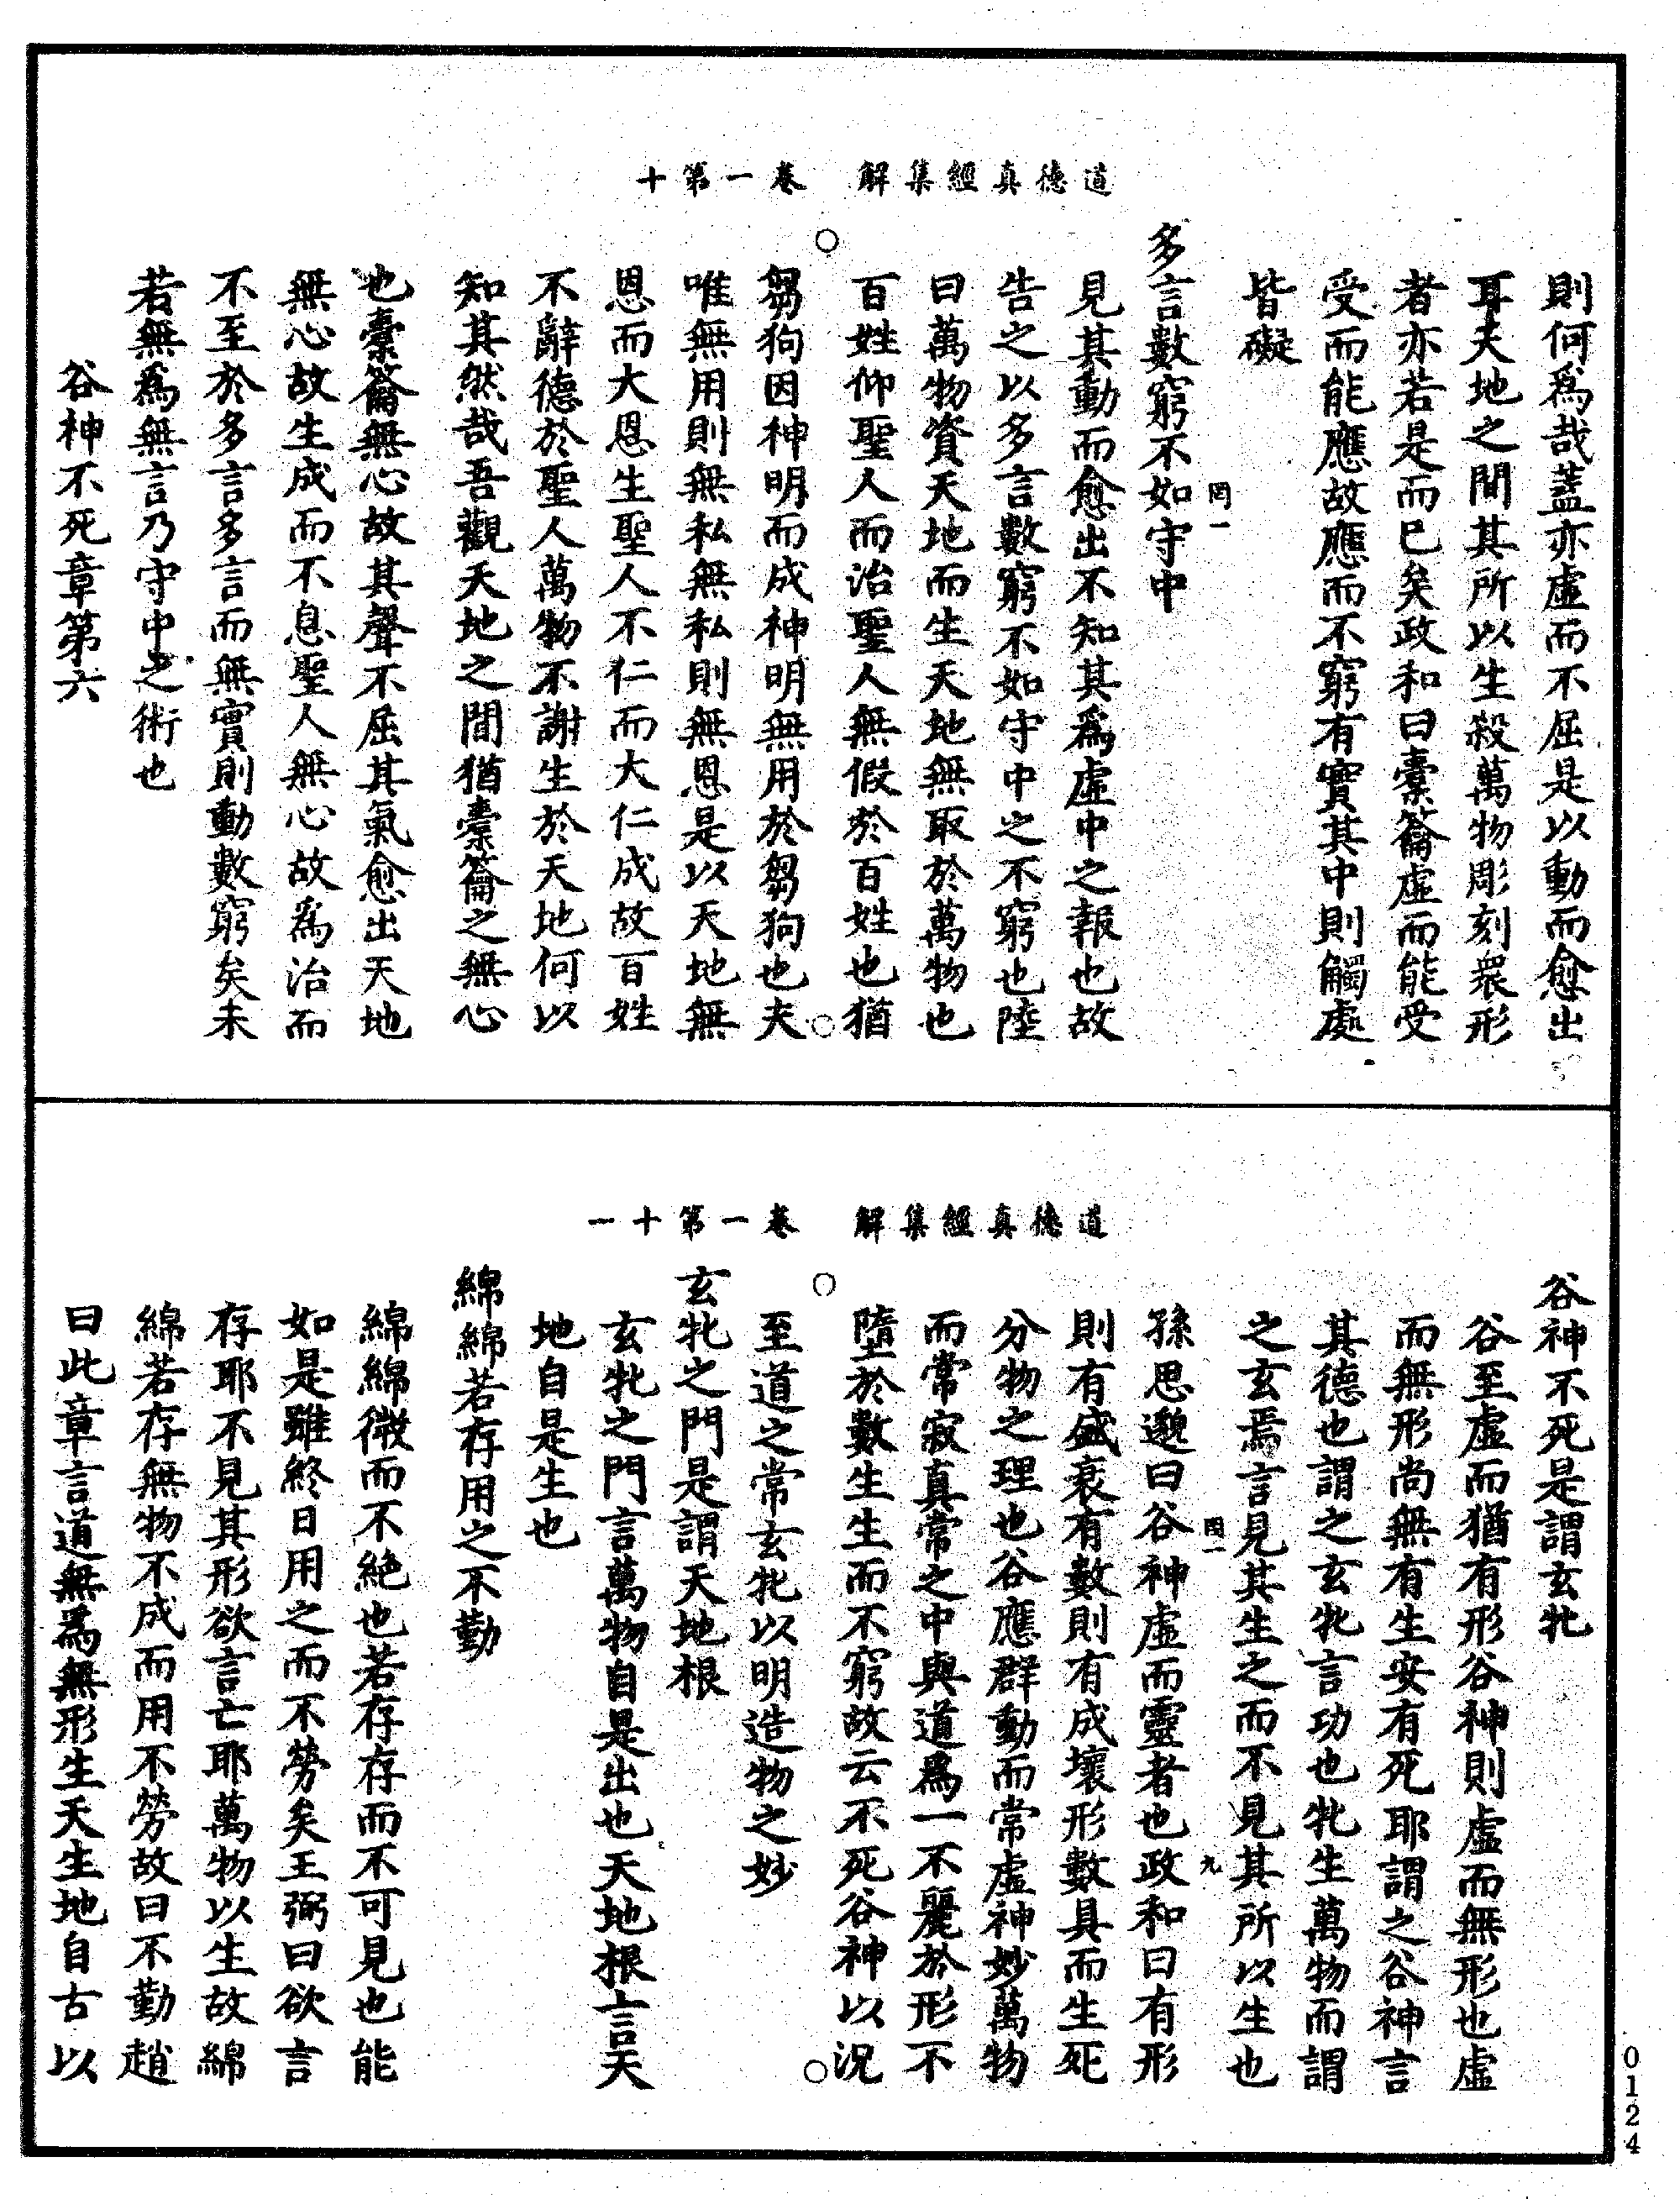 道德真經集解　卷一第十
則何爲哉蓋亦虛而不屈是以動而愈出
耳夫地之間其所以生殺萬物彫刻衆形
者亦若是而已矣政和曰橐籥虛而能受
受而能應故應而不窮有實其中則觸處
皆礙
罔一
多言數窮不如守中
見其動而愈出不知其爲虛中之報也故
告之以多言數窮不如守中之不窮也陸
曰萬物資天地而生天地無取於萬物也
百姓仰聖人而治聖人無假於百姓也猶
芻狗因神明而成神明無用於芻狗也夫
唯無用則無私無私則無恩是以天地無
恩而大恩生聖人不仁而大仁成故百姓
不辭德於聖人萬物不謝生於天地何以
知其然哉吾觀天地之間猶橐籥之無心
也橐籥無心故其聲不屈其氣愈出天地
無心故生成而不息聖人無心故爲治而
不至於多言多言而無實則動數窮矣未
若無爲無言乃守中之術也
谷神不死章第六
道德真經集解　卷一第十一
谷神不死是謂玄牝
谷至虛而猶有形谷神則虛而無形也虛
而無形尚無有生安有死耶謂之谷神言
其德也謂之玄牝言功也牝生萬物而謂
之玄焉言見其生之而不見其所以生也
罔一
九
孫思邈曰谷神虛而靈者也政和曰有形
則有盛衰有數則有成壞形數具而生死
分物之理也谷應群動而常虛神妙萬物
而常寂真常之中與道爲一不麗於形不
墮於數生生而不窮故云不死谷神以況
至道之常玄牝以明造物之妙
玄牝之門是謂天地根
玄牝之門言萬物自是出也天地根言天
地自是生也
綿綿若存用之不勤
綿綿微而不絶也若存存而不可見也能
如是雖終日用之而不勞矣王弼曰欲言
存耶不見其形欲言亡耶萬物以生故綿
綿若存無物不成而用不勞故曰不勤趙
曰此章言道無爲無形生天生地自古以
0124